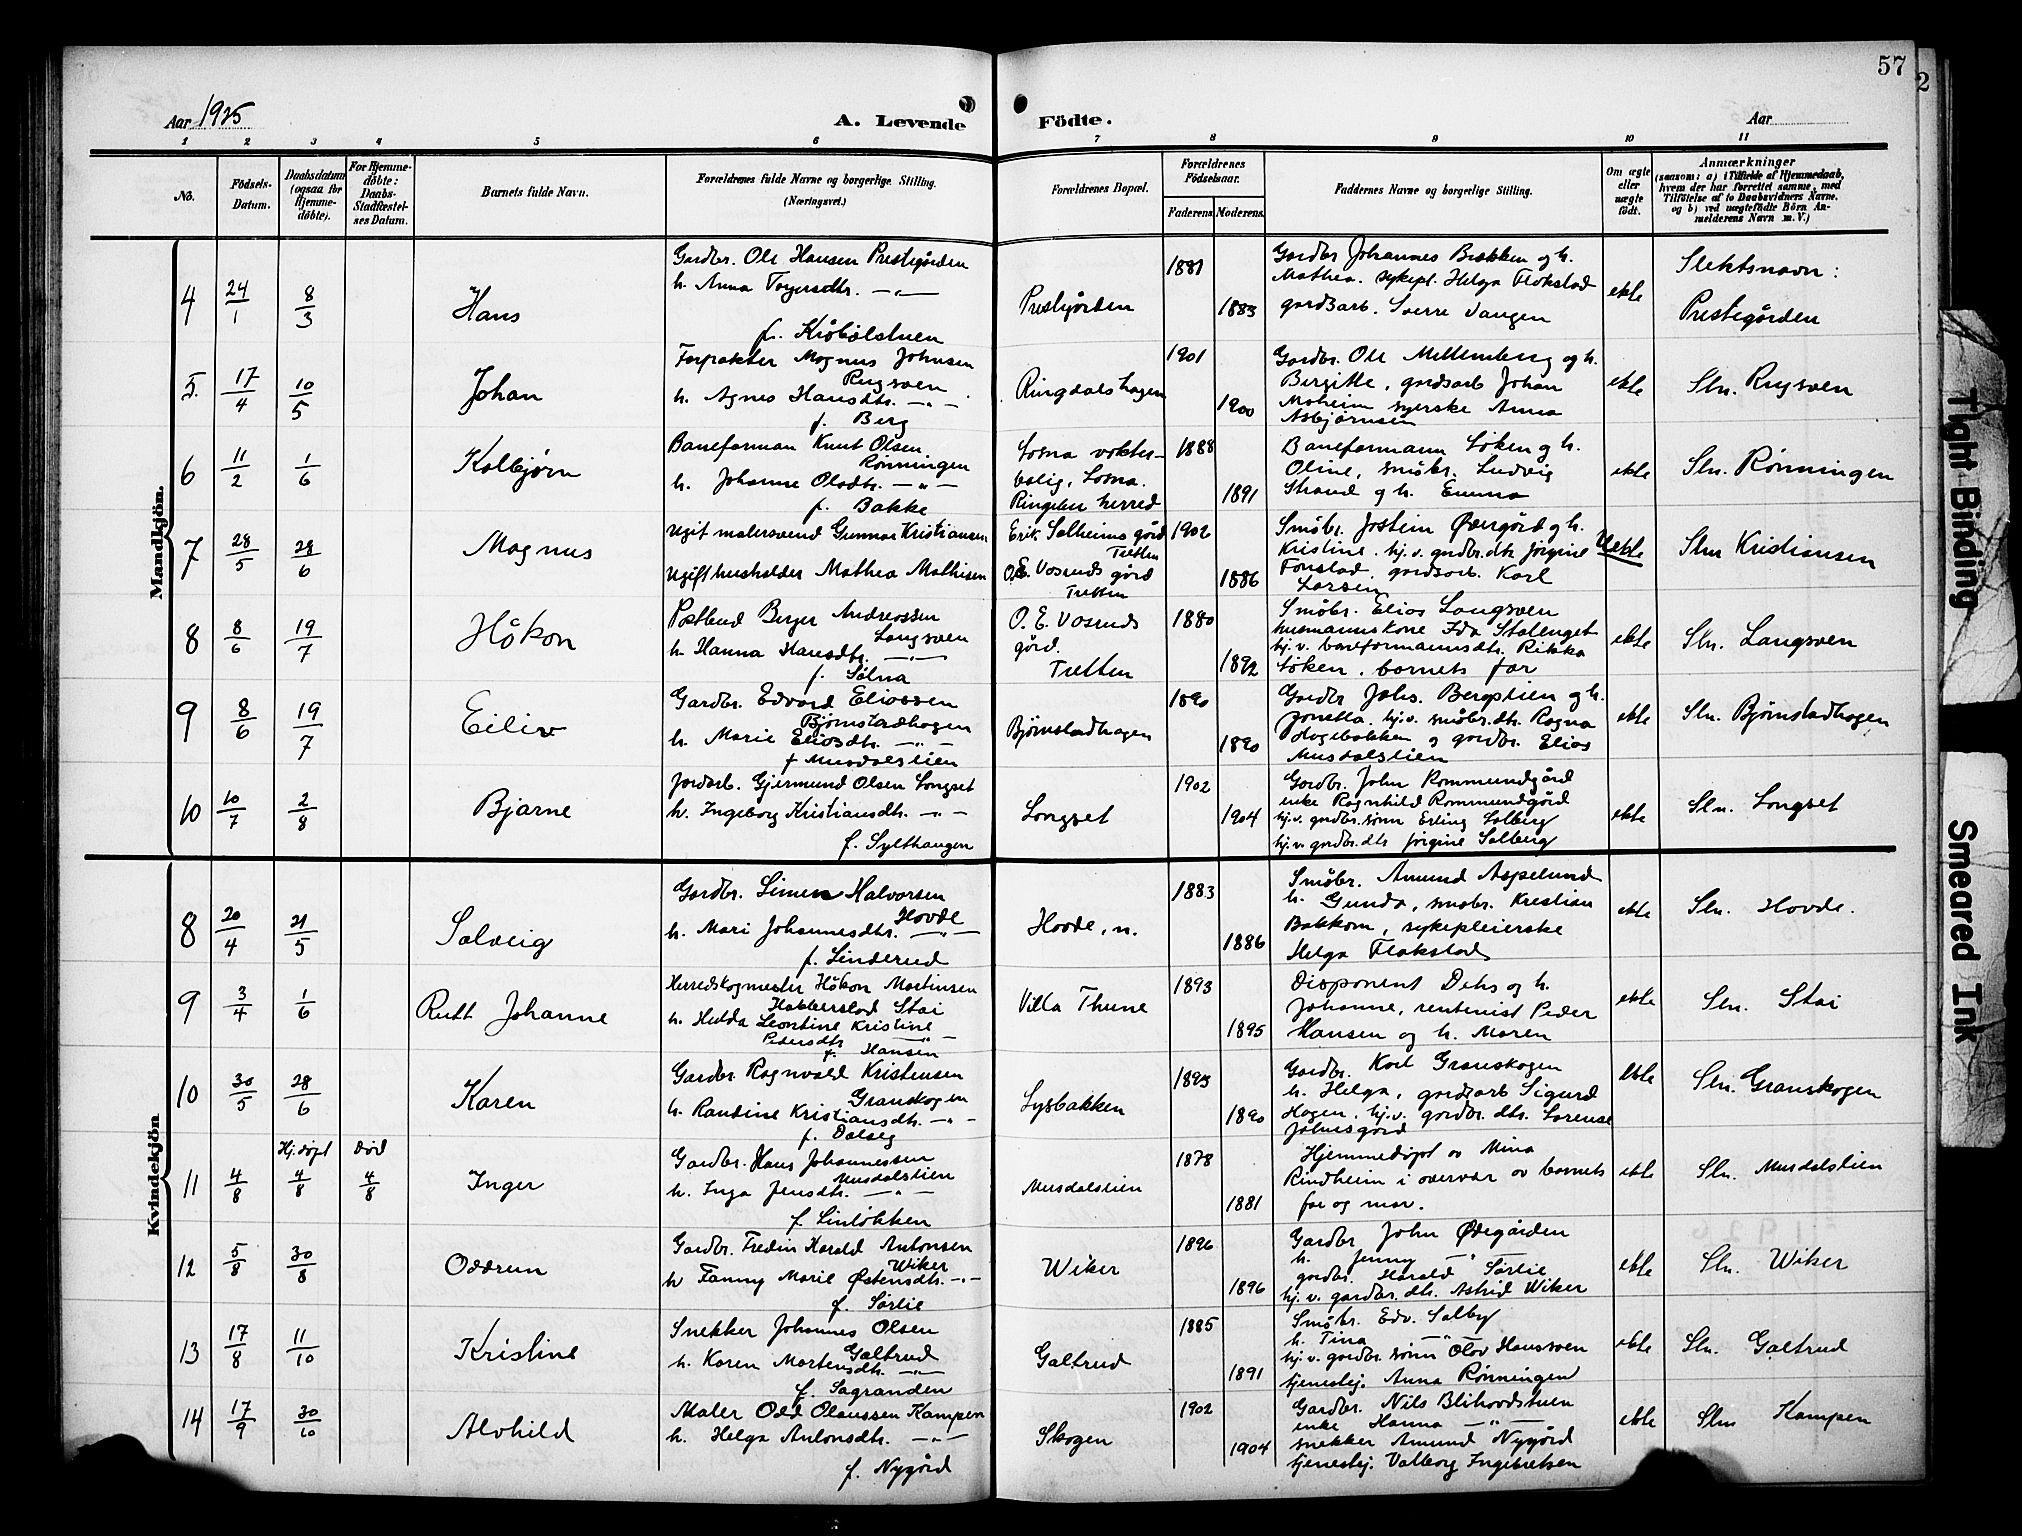 57
2
Aar 1925
A. Levende
Födte.
Aar
1 2 3 4 5 6 7 8 9 10 11
No.
Födsels-Datum.
Daabsdatum (ogsaa för Hjemme-döbte).
For Hjemme-döbte: Daabs-Stadfæstel-ses Datum.
Barnets fulde Navn.
Forældrenes fulde Navne og borgerlige Stilling. (Næringsvei.)
Forældrenes Bopæl.
Forældrenes Födselsaar.
Faderens. Moderens.
Faddernes Navne og borgerlige Stilling.
Om ægte eller uægte födt.
Anmærkninger
(saasom: a) i Tilfælde af Hjemmedaab, hvem der har forrettet samme, med Tilföielse af to Daabsvidners Navne, og b) ved uægtefödte Börn An-melderens Navn m. V.)
Mandkjön.
4 24/1 8/3 Hans
Gardbr. Ole Hansen Prestegården
h. Anna Torgersdtr. —"—
f. Kråbølstuen
Prestgården
1881
1883
Gardbr Johannes Brækken og h.
Mathea. sykepl. Helga Flokstad
gardsarb. Sverre Vangen
ekte
Slektsnavn:
Prestegården
5. 17/4 10/5 Johan
Forpakter Magnus Johnsen
Rugsveen
h. Agnes Hansdtr. —"—
f. Berg
Ringdalshagen
1901
1900
Gardbr. Ole Mellemberg og h.
Bergitte, gardsarb Johan
Moheim syerske Anna
Asbjørnsen
ekte
Sln. Rugsveen
6 11/2 1/6 Kolbjørn
Baneforman Knut Olsen
Rønningen
h. Johanne Olsdtr. —"—
f. Bakke
Losna vokter-
bolig, Losna.
Ringebu herred
1888
1891
Baneformann Løken og h.
Oline, småbr. Ludvig
Strand og h. Emma
ekte
Sln. Rønningen
7 28/5 28/6 Magnus
Ugift malersvend Gunnar Kristiansen
Ugift husholder Mathea Mathisen
Erik Solheims gård
Tretten
O.E. Vasruds gård
Tretten
1902
1886
Småbr. Jostein Øvergård og h.
Kristine. hj.v. gardbr.dtr Jørgine
Fonstad, gardsarb. Karl
Larsen
Uekte
Sln Kristiansen
8 8/6 19/7 Håkon
Postbud Berger Andreassen
Langsveen
h. Hanna Hansdtr. —"—
f. Sølna
O. E. Vasruds
gård.
Tretten
1880
1892
Småbr. Elias Langsveen
husmannskone Ida Stalenget
hj.v. baneformannsdtr. Rikka
Løken, barnets far
ekte
Sln. Langsveen
9 8/6 19/7 Eiliv
Gardbr. Edvard Eliassen
Bjørnstadhagen
h. Marie Eliasdtr. —"—
f Musdalslien
Bjørnstadhagen
1890
1890
Gardbr Johs. Bergslien og h.
Jonetta, hj.v. småbr.dtr. Ragna
Hagebakken og gardbr. Elias
Musdalslien
ekte
Sln. Bjørnstadhagen
10 10/7 2/8 Bjarne
Jordarb. Gjermund Olsen Longset
h. Ingeborg Kristiansdtr. —"—
f. Sylthaugen
Longset
1902
1904
Gardbr. John Rommundgård
enke Ragnhild Rommundgård
hj.v. gardbr. sønn Erling Solberg
hj.v. gardbr.dtr Jørgine Solberg
ekte
Sln. Longset
Kvindekjön
8 20/4 21/5 Solveig
Gardbr. Simen Halvorsen
Hovde
h. Mari Johannesdtr. —"—
f. Linderud
Hovde, n.
1883
1886
Småbr. Amund Aspelund
h. Gunda, småbr. Kristian
Bakkom, sykepleierske
Helga Flakstad
ekte
Sln. Hovde.
9 3/4 1/6 Ruth Johanne
Herredskogmester Håkon Martinsen
Habberstad Stai
h. Hulda Leontine Kristine
Pedersdtr —"—
f. Hansen
Villa Thune
1893
1895
Disponent Dehs og h.
Johanne, rentenist Peder
Hansen og h. Maren
ekte
Sln. Stai
10 30/5 28/6 Karen
Gardbr Ragnvald Kristensen
Granskogen
h. Randine Kristiansdtr. —"—
f. Dalseg
Lysbakken
1893
1890
Gardbr. Karl Granskogen
h. Helga, gardsarb Sigurd
Hagen, hj.v. gardbr. dtr. Lorense
Johnsgård
ekte
Sln. Granskogen
11 4/8 Hj.døpt 4/8 Død 4/8 Inger
Gardbr. Hans Johannessen
Musdalslien
h. Inga Jensdtr. —"—
f. Linløkken
Musdalslien
1878
1881
Hjemmedøpt av Mina
Rindheim i overvær av barnets
far og mor.
ekte
Sln. Musdalslien
12 5/8 30/8 Oddrun
Gardbr. Fredin Harald Antonsen
Wiker
h Fanny Marie Østensdtr. —"—
f. Sørlie
Wiker
1896
1896
Gardbr John Ødegården
h. Jenny —"—
gardbr. Harald Sørlie
hj.v. gardbr. dtr. Astrid Wiker
ekte
Sln. Wiker
13 17/8 11/10 Kristine
Snekker Johannes Olsen
Galtrud
h. Karen Martensdtr. —"—
f. Sagranden
Galtrud
1885
1891
Småbr. Edv. Solby
h. Tina —"—
hj.v. gardbr sønn Olav Hansveen
tjenestej. Anna Rønningen
ekte
Sln. Galtrud
14 17/9 30/10 Alvhild
Maler Odd Olaussen Kampen
h. Helga Antonsdtr. —"—
f. Nygård
Skogen
1902
1904
Gardbr. Nils Blihovdstuen
enke Hanna —"—
snekker Amund Nygård
tjenestej. Valborg Ingebretsen
ekte
Sln Kampen
Tight Binding
Smeared Ink